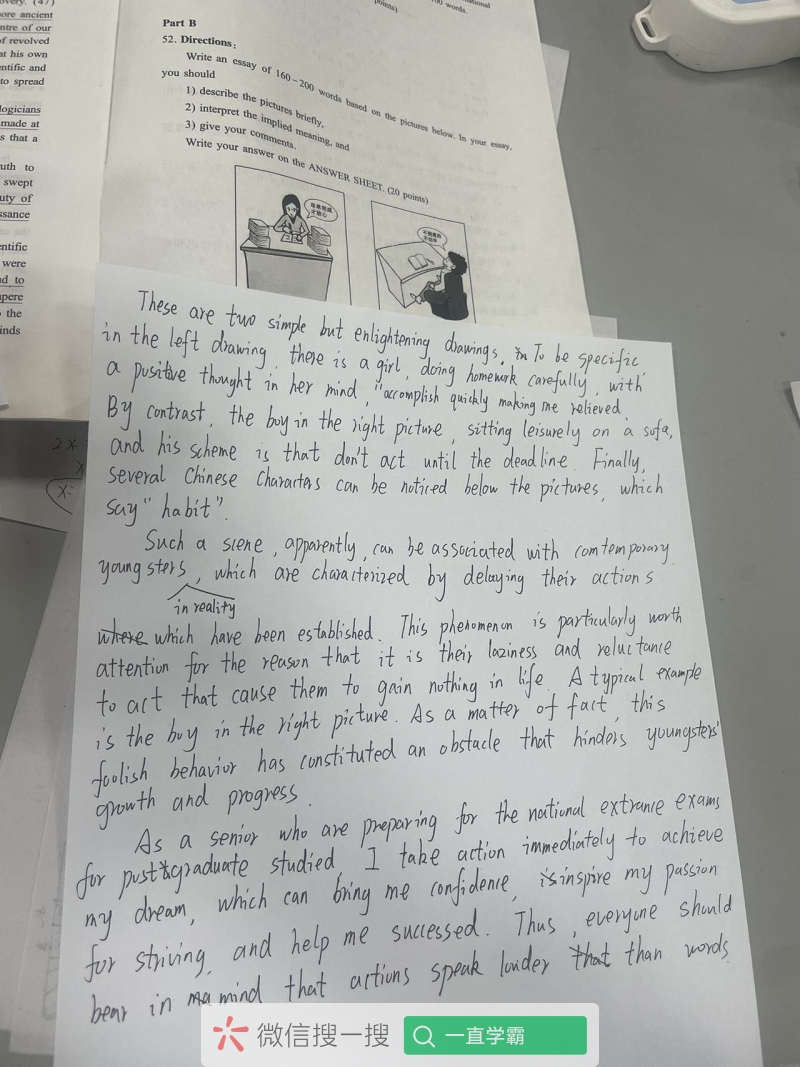 overy. (47)
ore ancient
ntre of our
f revolved
at his own
entific and
to spread
logicians
made at
s that a
uth to
swept
uty of
ssance
entific
were
nd to
mpere
the
inds
points)
00 words.
Part B
52. Directions:
Write an essay of 160-200 words based on the pictures below. In your essay,
you should
1) describe the pictures briefly,
2) interpret the implied meaning, and
3) give your comments.
Write your answer on the ANSWER SHEET. (20 points)
早早完成
才放心
不到最后
不动手
These are two simple but enlightening drawings. in To be specific
in the left drawing, there is a girl, doing homework carefully, with
a positive thought in her mind, "accomplish quickly making me relieved.
By contrast, the boy in the right picture, sitting leisurely on a sofa,
and his scheme is that don't act until the deadline. Finally,
several Chinese Charactors can be noticed below the pictures, which
say "habit".
Such a scene, apparently, can be associated with comtemporary
youngsters, which are characterized by delaying their actions
in reality
where which have been established. This phenomenon is particularly worth
attention for the reason that it is their laziness and reluctance
to act that cause them to gain nothing in life. A typical example
is the boy in the right picture. As a matter of fact, this
foolish behavior has constituted an obstacle that hinders youngsters'
growth and progress.
As a senior who are preparing for the national extrance exams
for postgraduate studied, I take action immediately to achieve
my dream, which can bring me confidence, is inspire my passion
for striving, and help me successed. Thus, everyone should
bear in ma mind that actions speak louder that than words.
2x
x
x=
微信搜一搜
一直学霸